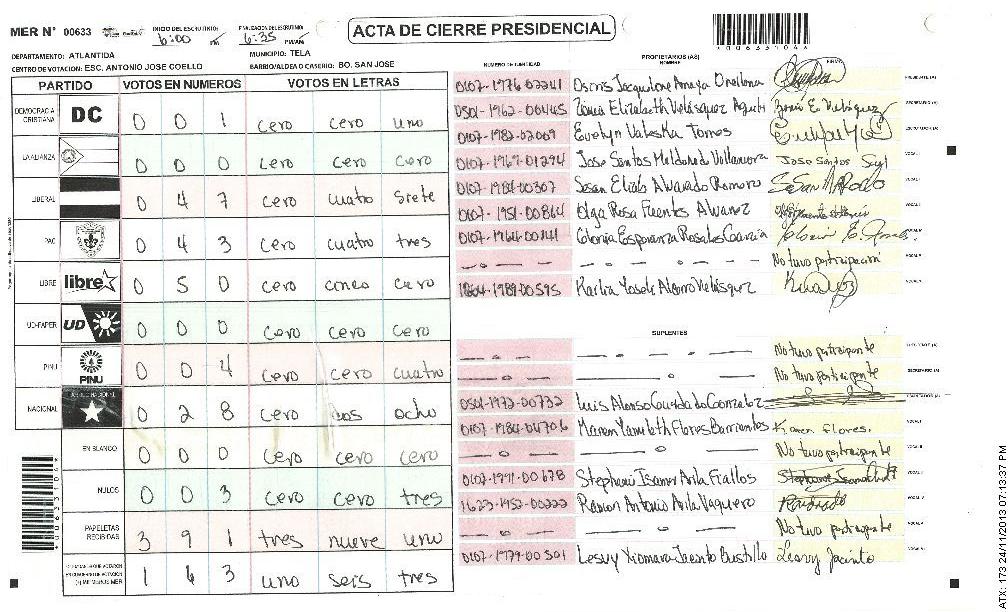 MER N° 00633
INICIO DEL ESCRUTINIO: 6:00 PM
FINALIZACION DEL ESCRUTINIO: 6:35 PM/AM
ACTA DE CIERRE PRESIDENCIAL
DEPARTAMENTO: ATLANTIDA MUNICIPIO: TELA
CENTRO DE VOTACION: ESC. ANTONIO JOSE COELLO BARRIO/ALDEA O CASERIO: BO. SAN JOSE
PARTIDO VOTOS EN NUMEROS VOTOS EN LETRAS
DEMOCRACIA CRISTIANA DC 0 0 1 cero cero uno
LA ALIANZA 0 0 0 cero cero cero
LIBERAL 0 4 7 cero cuatro siete
PAC 0 4 3 cero cuatro tres
LIBRE libre 0 5 0 cero cinco cero
UD-FAPER UD 0 0 0 cero cero cero
PINU PINU 0 0 4 cero cero cuatro
NACIONAL 0 2 8 cero dos ocho
EN BLANCO 0 0 0 cero cero cero
NULOS 0 0 3 cero cero tres
PAPELETAS RECIBIDAS 3 9 1 tres nueve uno
1 6 3 uno seis tres
NUMERO DE IDENTIDAD PROPIETARIOS (AS) NOMBRE FIRMA
PRESIDENTE (A)
0501-1962-00445 Elizabeth Velásquez SECRETARIO (A)
0107-1982-02009 Evelyn Valeska Torres ESCRUTADOR (A)
0107-1967-01294 Jose Santos Maldonado Jose Santos VOCAL I
0107-1984-00307 Alvarado Romero
0107-1951-00864 Olga Rosa Fuentes Alvarez
Gloria Esperanza Rosales García
No tuvo participación
1804-1989-00595 Karlia Velásquez
SUPLENTES
No tuvo participante
No tuvo participante SECRETARIO (A)
0501-1972-00732 Luis Alonso Gonzalez
0107-1984-04706 Karen Yamileth Flores Barrientos Karen Flores.
No tuvo participante
0107-1991-00678 Stephani Avila Fiallos
1623-1952-00222 Ramon Antonio Avila
No tuvo participante
0107-1979-00501 Lesvy Xiomara Jacinto Bustillo Lesvy Jacinto
ATX: 173 24/11/2013 07:13:37 PM